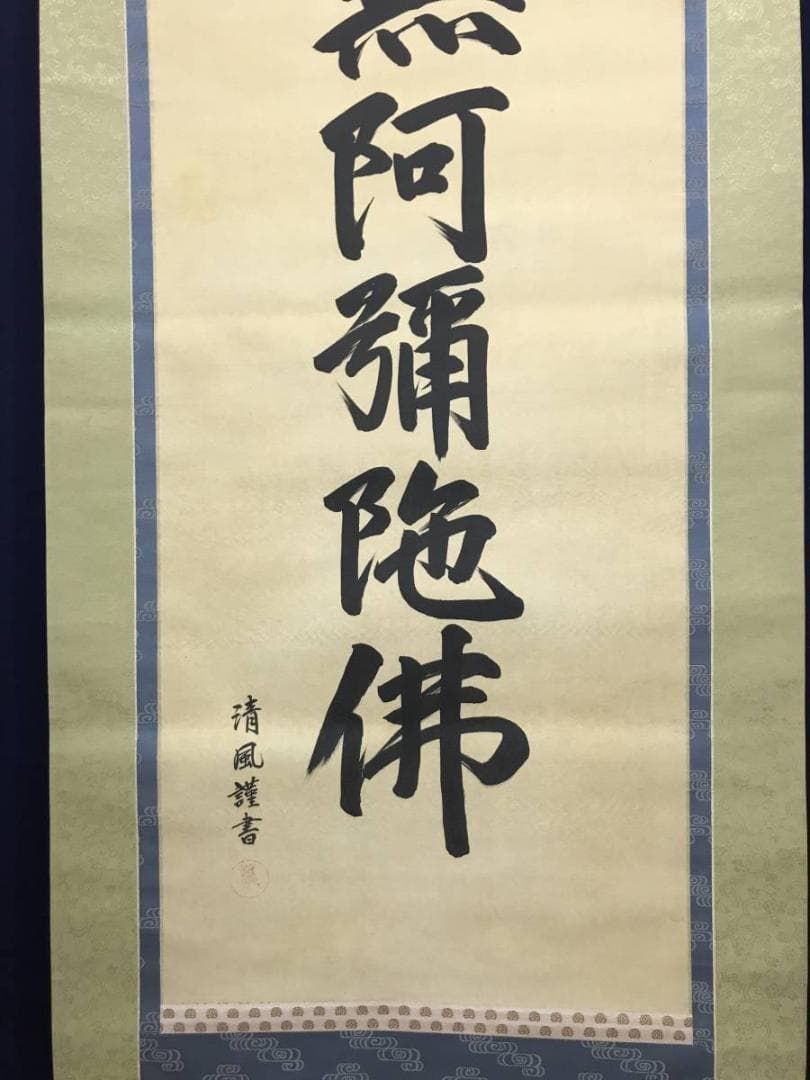 無阿彌陀佛
清風謹書